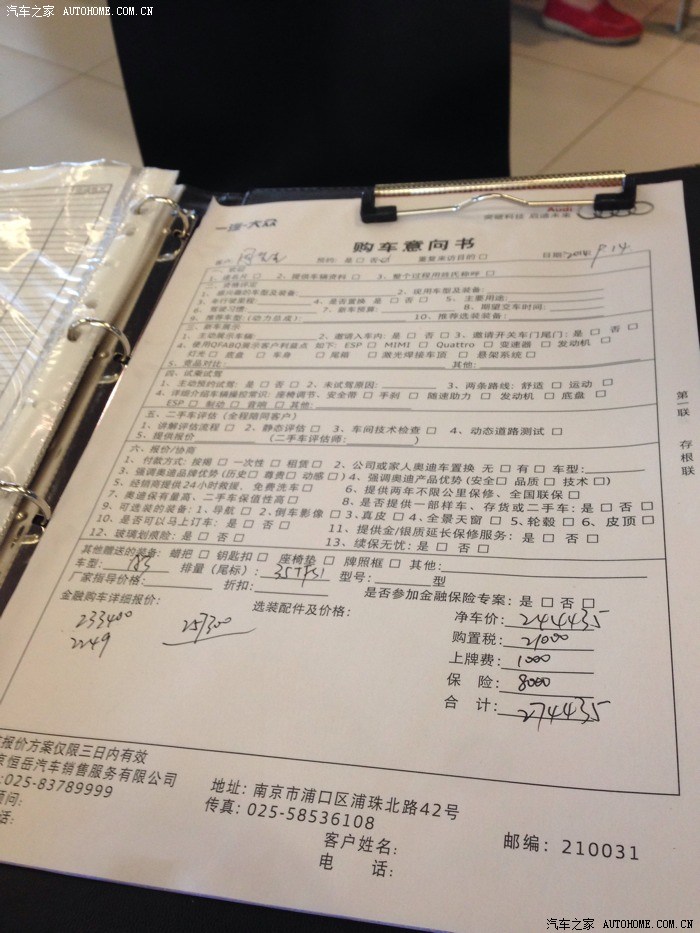 汽车之家 AUTOHOME.COM.CN
一汽-大众
Audi
突破科技 启迪未来
购车意向书
预约: 是 □ 否 □ 重复来访目的 □ 日期:
2、提供车辆资料 □ 3、整个过程用姓氏称呼 □
1、感兴趣的车型及装备: 2、使用车型及装备:
3、年行驶里程: 4、是否置换 是 □ 否 □ 5、主要用途:
6、驾驶习惯: 7、新车预算: 8、期望交车时间:
9、推荐车型(动力总成): 10、推荐选装装备:
三、新车展示
1、主动展示车辆: 2、邀请入车内: 是 □ 否 □ 3、邀请开关车门尾门: 是 □ 否 □
4、使用QFABQ展示客户利益点 如下: ESP □ MIMI □ Quattro □ 变速器 □ 发动机 □
灯光 □ 底盘 □ 车身 □ 尾箱 □ 激光焊接车顶 □ 悬架系统 □
5、竞品对比: 其他:
四、试乘试驾
1、主动预约试驾: 是 □ 否 □ 2、未试驾原因: 3、两条路线: 舒适 □ 运动 □
4、详细介绍车辆操控常识: 座椅调节、安全带 □ 手刹 □ 随速助力 □ 发动机 □ 底盘 □
ESP □ 制动 □ 音响 □ 其他:
五、二手车评估(全程陪同客户)
1、讲解评估流程 □ 2、静态评估 □ 3、车间技术检查 □ 4、动态道路测试 □
5、提供报价 (二手车评估师: )
六、报价/协商
1、付款方式: 按揭 □ 一次性 □ 租赁 □ 2、公司或家人奥迪车置换 无 □ 有 □ 车型:
3、强调奥迪品牌优势(历史 □ 尊贵 □ 动感 □ ) 4、强调奥迪产品优势(安全 □ 品质 □ 技术 □ )
5、经销商提供24小时救援、免费洗车 □ 6、提供两年不限公里保修、全国联保 □
7、奥迪保有量高、二手车保值性高 □ 8、是否提供一部样车、存货或二手车: 是 □ 否 □
9、可选装的装备: 1、导航 □ 2、倒车影像 □ 3、真皮 □ 4、全景天窗 □ 5、轮毂 □ 6、皮顶 □
10、是否可以马上订车: 是 □ 否 □ 11、提供金/银质延长保修服务: 是 □ 否 □
12、玻璃划痕险: 是 □ 否 □ 13、续保无忧: 是 □ 否 □
其他赠送的装备: 蜡把 □ 钥匙扣 □ 座椅垫 □ 牌照框 □ 其他:
车型: 排量(尾标): 35TFSI 型号: 型
厂家指导价格: 折扣: 是否参加金融保险专案: 是 □ 否 □
金融购车详细报价: 选装配件及价格: 净车价: 244435
233400 257300 购置税: 21000
2249 上牌费: 1000
保 险: 8000
合 计: 274435
第一联 存根联
报价方案仅限三日内有效
京恒岳汽车销售服务有限公司
:025-83789999
地址: 南京市浦口区浦珠北路42号
传真: 025-58536108
顾问:
话:
客户姓名:
电 话:
邮编: 210031
汽车之家 AUTOHOME.COM.CN